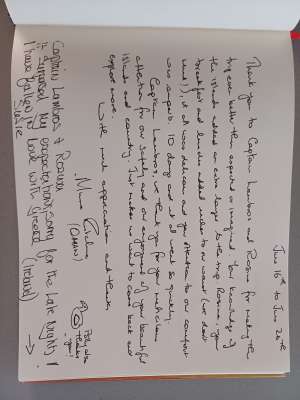 June 16th to June 26th
Thank you to Captain Lambros and Rosina for making this
trip even better than expected or imagined. Your knowledge of
the islands added an extra danger to the trip. Rosina, your
breakfast and lunches added order to our
it all was delicious and your attention to our comfort
was superb. 10 days and it all went so quickly.
Captain Lambros we thank you for your meticulous
attention for our safety and our enjoyment of your beautiful
islands and country. Just makes us want to come back and
explore more.
With much appreciation and thanks
thanks
you!
Captain Lambros & Rosina
It surpassed my expectations. Sorry for the late nights!
I have fallen in love with Greece
(Ireland)